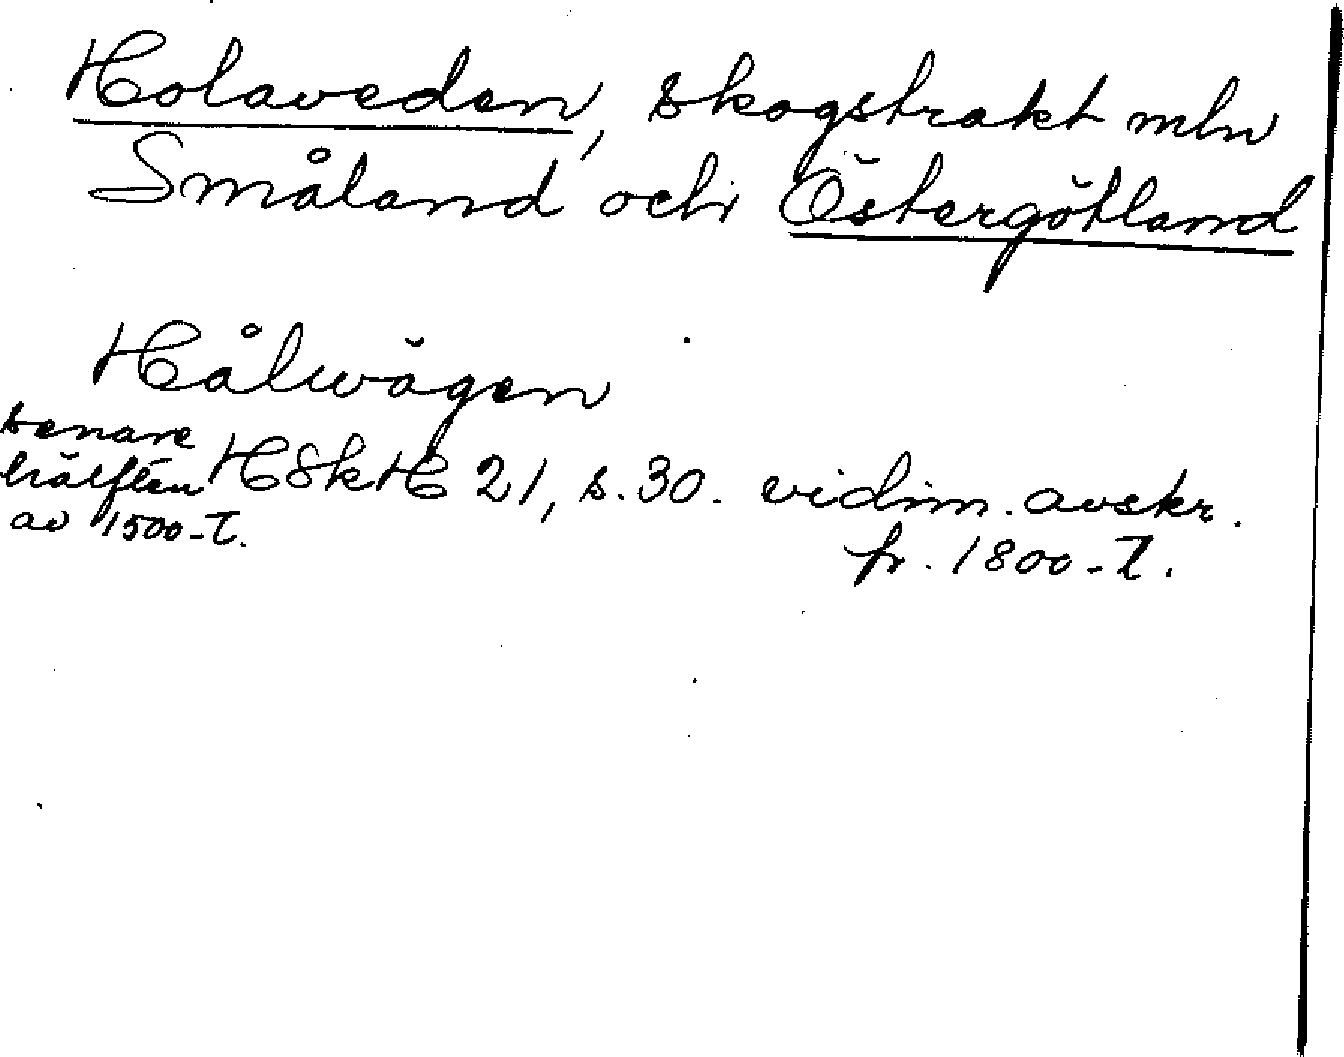 Holaveden, skogstrakt mln
Småland och Östergötland
Hålwägen
senare
hälften HSkH 21, s. 30. vidim. avskr.
av 1500-t.
fr. 1800-t.